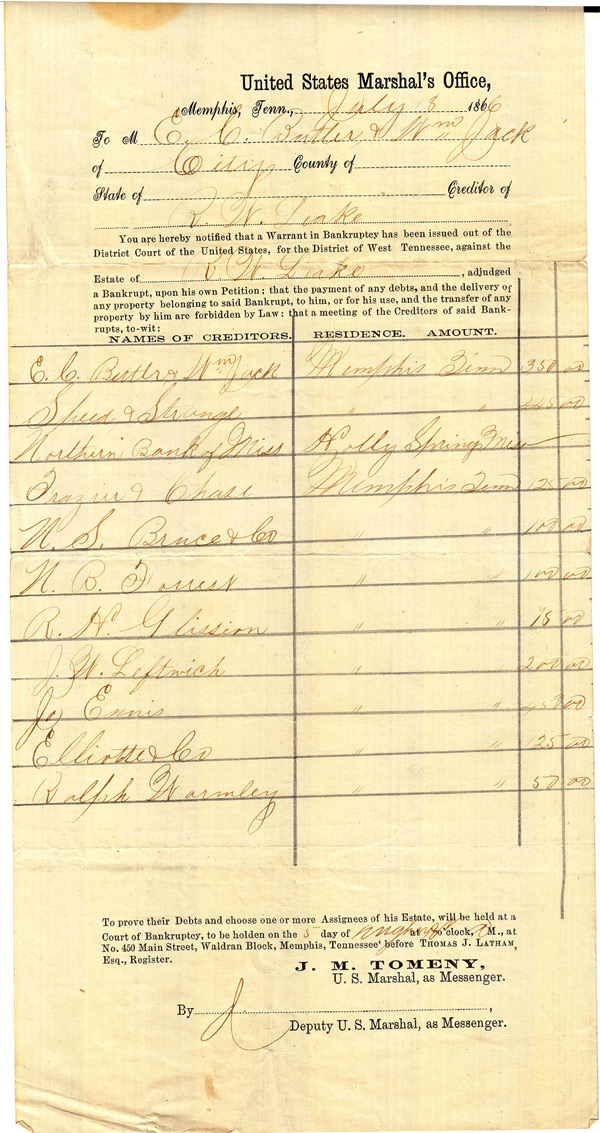 United States Marshal's Office,
Memphis, Tenn., July 8 1866
To M E. C. Butler & Wm Jack
of City County of
State of Creditor of
R. W. Leake
You are hereby notified that a Warrant in Bankruptcy has been issued out of the
District Court of the United States, for the District of West Tennessee, against the
Estate of R W. Leake, adjudged
a Bankrupt, upon his own Petition; that the payment of any debts, and the delivery of
any property belonging to said Bankrupt, to him, or for his use, and the transfer of any
property by him are forbidden by Law: that a meeting of the Creditors of said Bank-
rupts, to-wit:
NAMES OF CREDITORS. RESIDENCE. AMOUNT.
E. C. Butler & Wm Jack Memphis Tenn 350 00
Speed & Strange " " 00
Northern Bank of Miss Holly Springs Miss
Frazier & Chase Memphis Tenn 125 00
N. S. Bruce & Co " " 100 00
N. B. Forrest " " 100 00
R. H. Glission " " 75 00
J. W. Leftwich " " 200 00
Jo Ennis " " 00
Elliotte & Co " " 125 00
Ralph Wormley " " 50 00
To prove their Debts and choose one or more Assignees of his Estate, will be held at a
Court of Bankruptcy, to be holden on the 5 day of at o'clock, A M., at
No. 450 Main Street, Waldran Block, Memphis, Tennessee before THOMAS J. LATHAM,
Esq., Register.
J. M. TOMENY,
U. S. Marshal, as Messenger.
By ,
Deputy U. S. Marshal, as Messenger.